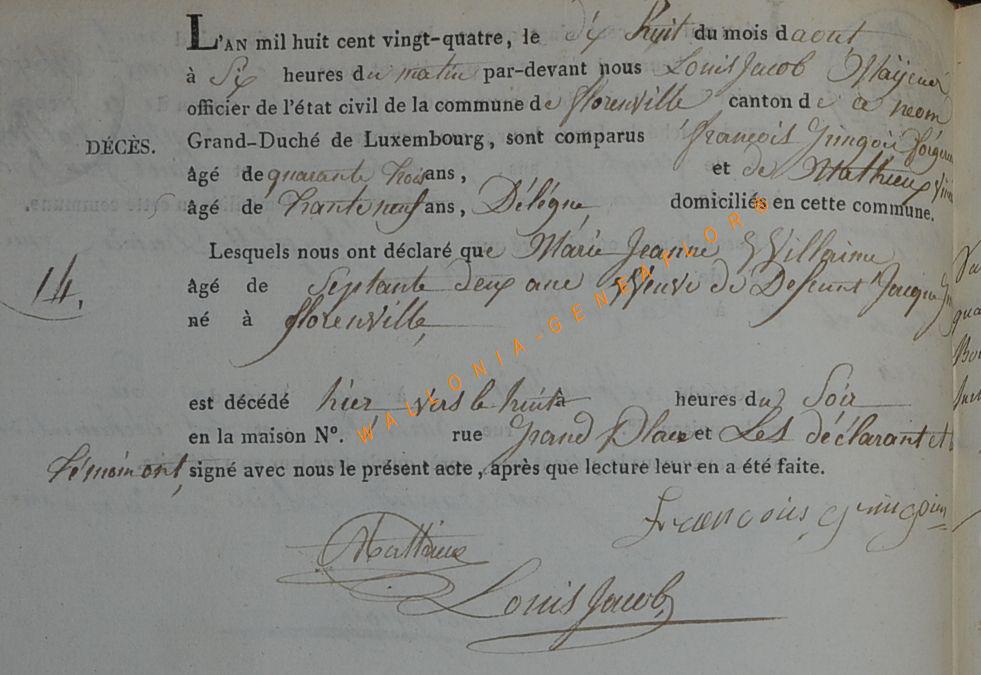 L'AN mil huit cent vingt-quatre, le dix huit du mois d'aout
à Six heures du matin par-devant nous Louis Jacob Mayeur
officier de l'état civil de la commune de florenville canton de ce nom
DÉCÈS. Grand-Duché de Luxembourg, sont comparus François
âgé de quarante trois ans, et de Mathieu
âgé de trante neuf ans, Délégué, domiciliés en cette commune.
Lesquels nous ont déclaré que Marie Jeanne Willaime
14, âgé de Septante deux ans Veuve de Defunt Jacque
né à florenville,
est décédé hier vers le huit heures du Soir
en la maison N°. rue Grand Place et Les déclarant et
témoin ont signé avec nous le présent acte, après que lecture leur en a été faite.
François
Mathieu
Louis Jacob
WALLONIA-GENEAFLORE